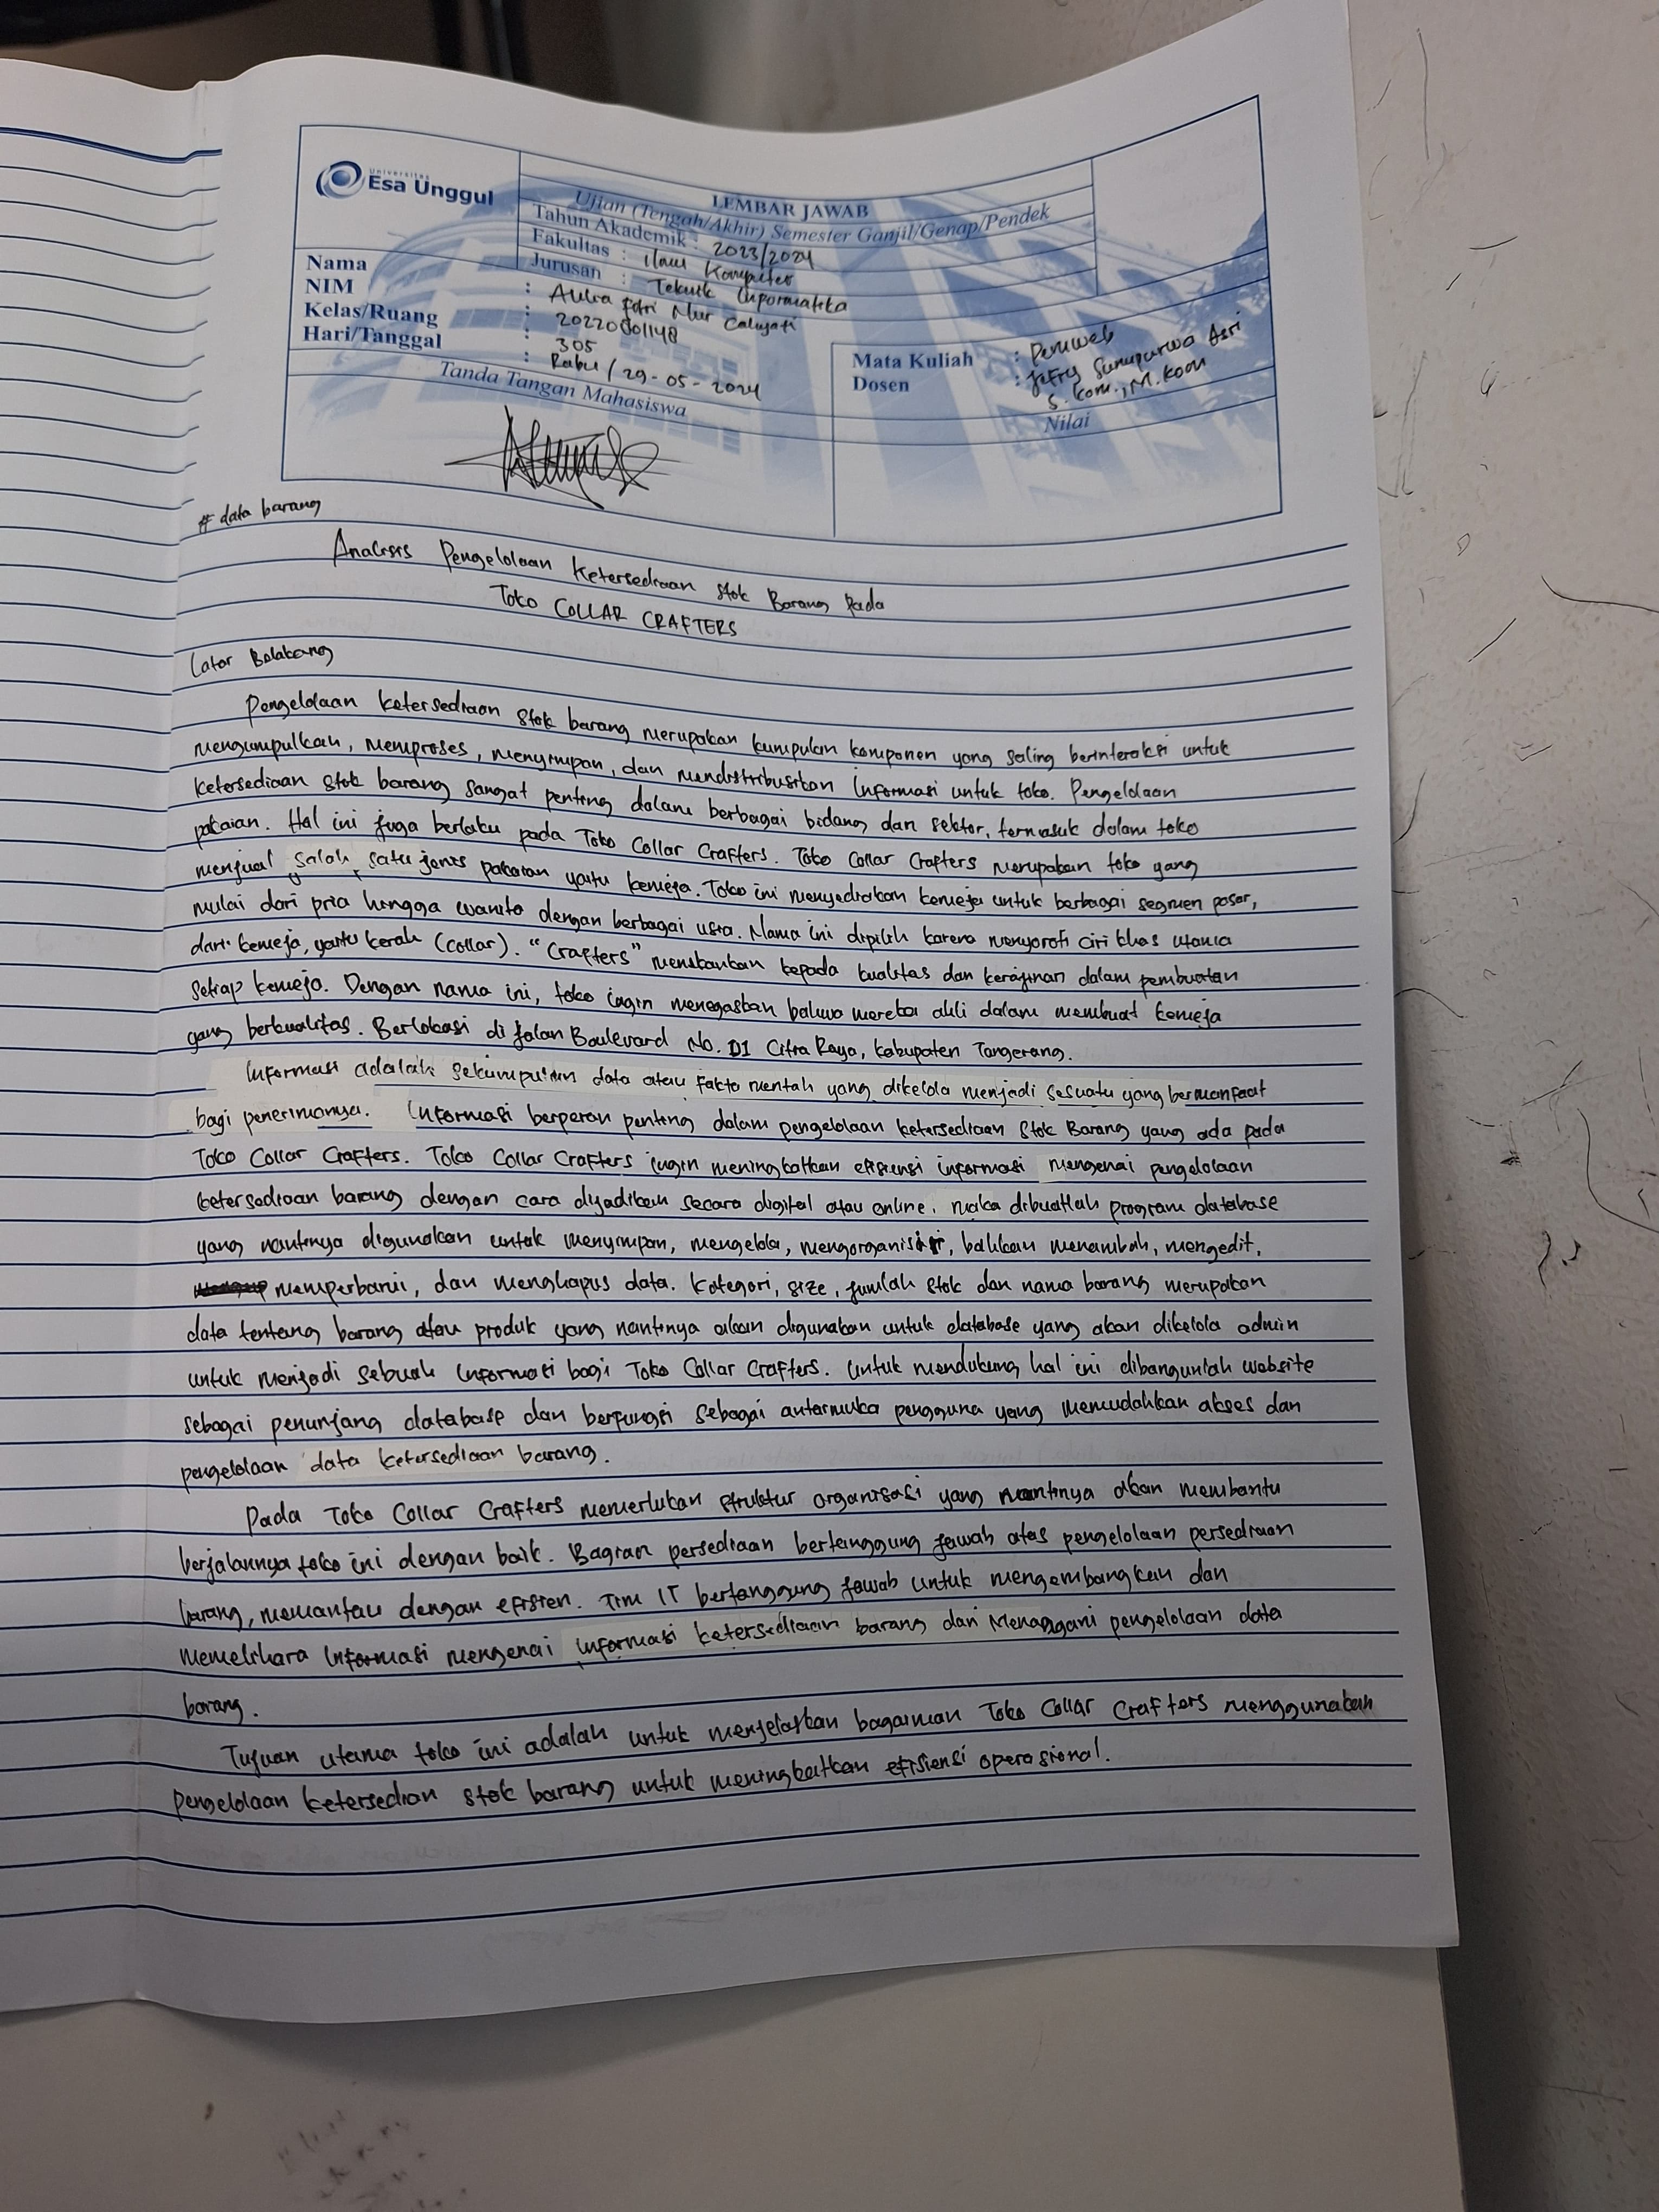 Universitas
Esa Unggul
LEMBAR JAWAB
Ujian (Tengah/Akhir) Semester Ganjil/Genap/Pendek
Tahun Akademik : 2023/2024
Fakultas : Ilmu Komputer
Jurusan : Teknik Informatika
Nama : Aulia Fitri Nur Cahyati
NIM : 20220801148
Kelas/Ruang : 305
Hari/Tanggal : Rabu / 29-05-2024
Mata Kuliah : Pemweb
Dosen : Jefry Sunupurwa Asri
S.Kom., M.Kom
Tanda Tangan Mahasiswa
Nilai
# data barang
Analisis Pengelolaan Ketersediaan Stok Barang Pada
Toko COLLAR CRAFTERS
Latar Belakang
Pengelolaan ketersediaan stok barang merupakan kumpulan komponen yang saling berinteraksi untuk
mengumpulkan, memproses, menyimpan, dan mendistribusikan informasi untuk toko. Pengelolaan
ketersediaan stok barang sangat penting dalam berbagai bidang dan sektor, termasuk dalam toko
pakaian. Hal ini juga berlaku pada Toko Collar Crafters. Toko Collar Crafters merupakan toko yang
menjual salah satu jenis pakaian yaitu kemeja. Toko ini menyediakan kemeja untuk berbagai segmen pasar,
mulai dari pria hingga wanita dengan berbagai usia. Nama ini dipilih karena menyoroti ciri khas utama
dari kemeja, yaitu kerah (collar). "Crafters" menekankan kepada kualitas dan kerajinan dalam pembuatan
setiap kemeja. Dengan nama ini, toko ingin menegaskan bahwa mereka ahli dalam membuat kemeja
yang berkualitas. Berlokasi di Jalan Boulevard No. D1 Citra Raya, Kabupaten Tangerang.
Informasi adalah sekumpulan data atau fakta mentah yang dikelola menjadi sesuatu yang bermanfaat
bagi penerimanya. Informasi berperan penting dalam pengelolaan ketersediaan Stok Barang yang ada pada
Toko Collar Crafters. Toko Collar Crafters ingin meningkatkan efisiensi informasi mengenai pengelolaan
ketersediaan barang dengan cara dijadikan secara digital atau online, maka dibuatlah program database
yang nantinya digunakan untuk menyimpan, mengelola, mengorganisir, bahkan menambah, mengedit,
memperbarui, dan menghapus data. Kategori, size, jumlah stok dan nama barang merupakan
data tentang barang atau produk yang nantinya akan digunakan untuk database yang akan dikelola admin
untuk menjadi sebuah informasi bagi Toko Collar Crafters. Untuk mendukung hal ini dibangunlah website
sebagai penunjang database dan berfungsi sebagai antarmuka pengguna yang memudahkan akses dan
pengelolaan data ketersediaan barang.
Pada Toko Collar Crafters memerlukan struktur organisasi yang nantinya akan membantu
berjalannya toko ini dengan baik. Bagian persediaan bertanggung jawab atas pengelolaan persediaan
barang, memantau dengan efisien. Tim IT bertanggung jawab untuk mengembangkan dan
memelihara informasi mengenai informasi ketersediaan barang dan Menangani pengelolaan data
barang.
Tujuan utama toko ini adalah untuk menjelaskan bagaiman Toko Collar Crafters menggunakan
pengelolaan ketersedian stok barang untuk meningkatkan efisiensi operasional.